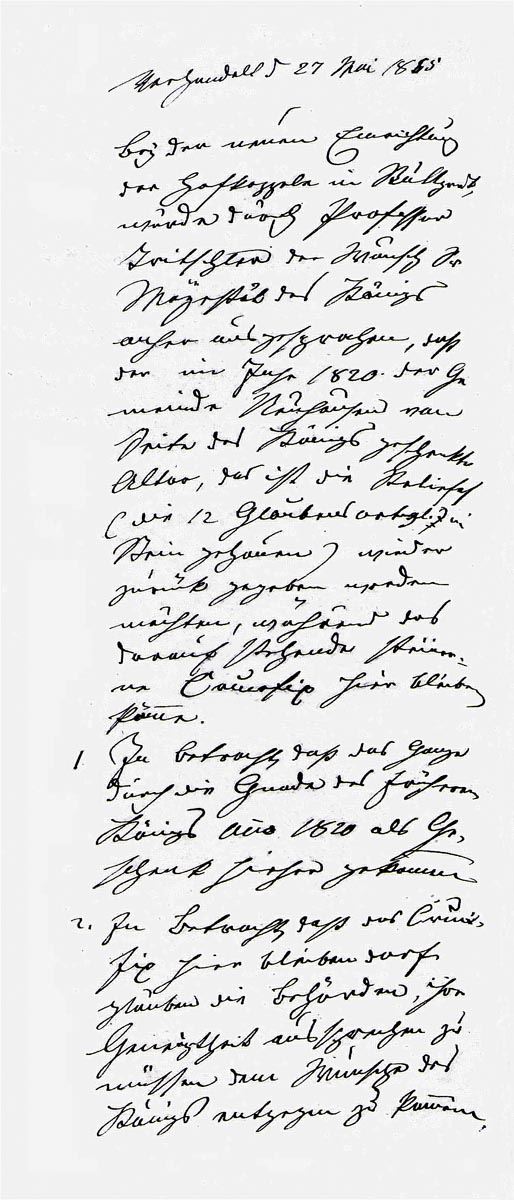 Verhandelt d 27 Mai 1865
Bey der neuen Einrichtung
der Hofkappele in Stuttgardt,
wurde durch Professor
der Wunsch Sr
Majestät des Königs
anher ausgesprochen, daß
der im Jahr 1820 der Ge
meinde Neuhausen von
Seite des Königs geschenkte
Altar, das ist die Reliefs
(die 12 Glaubensartikel in
Stein gehauen) wieder
zurück gegeben werden
möchten, während das
darauf stehende steiner-
ne Crucifix hier bleiben
könne.
1. In Betracht, daß das Ganze
durch die Gnade des früheren
Königs Ano 1820 als Ge-
schenk hieher gekommen
2. In Betracht, daß das Cruci-
fix hier bleiben darf
glauben die Behörden, ihre
Geneigtheit aussprechen zu
müssen dem Wunsche des
Königs entgegen zu kommen.